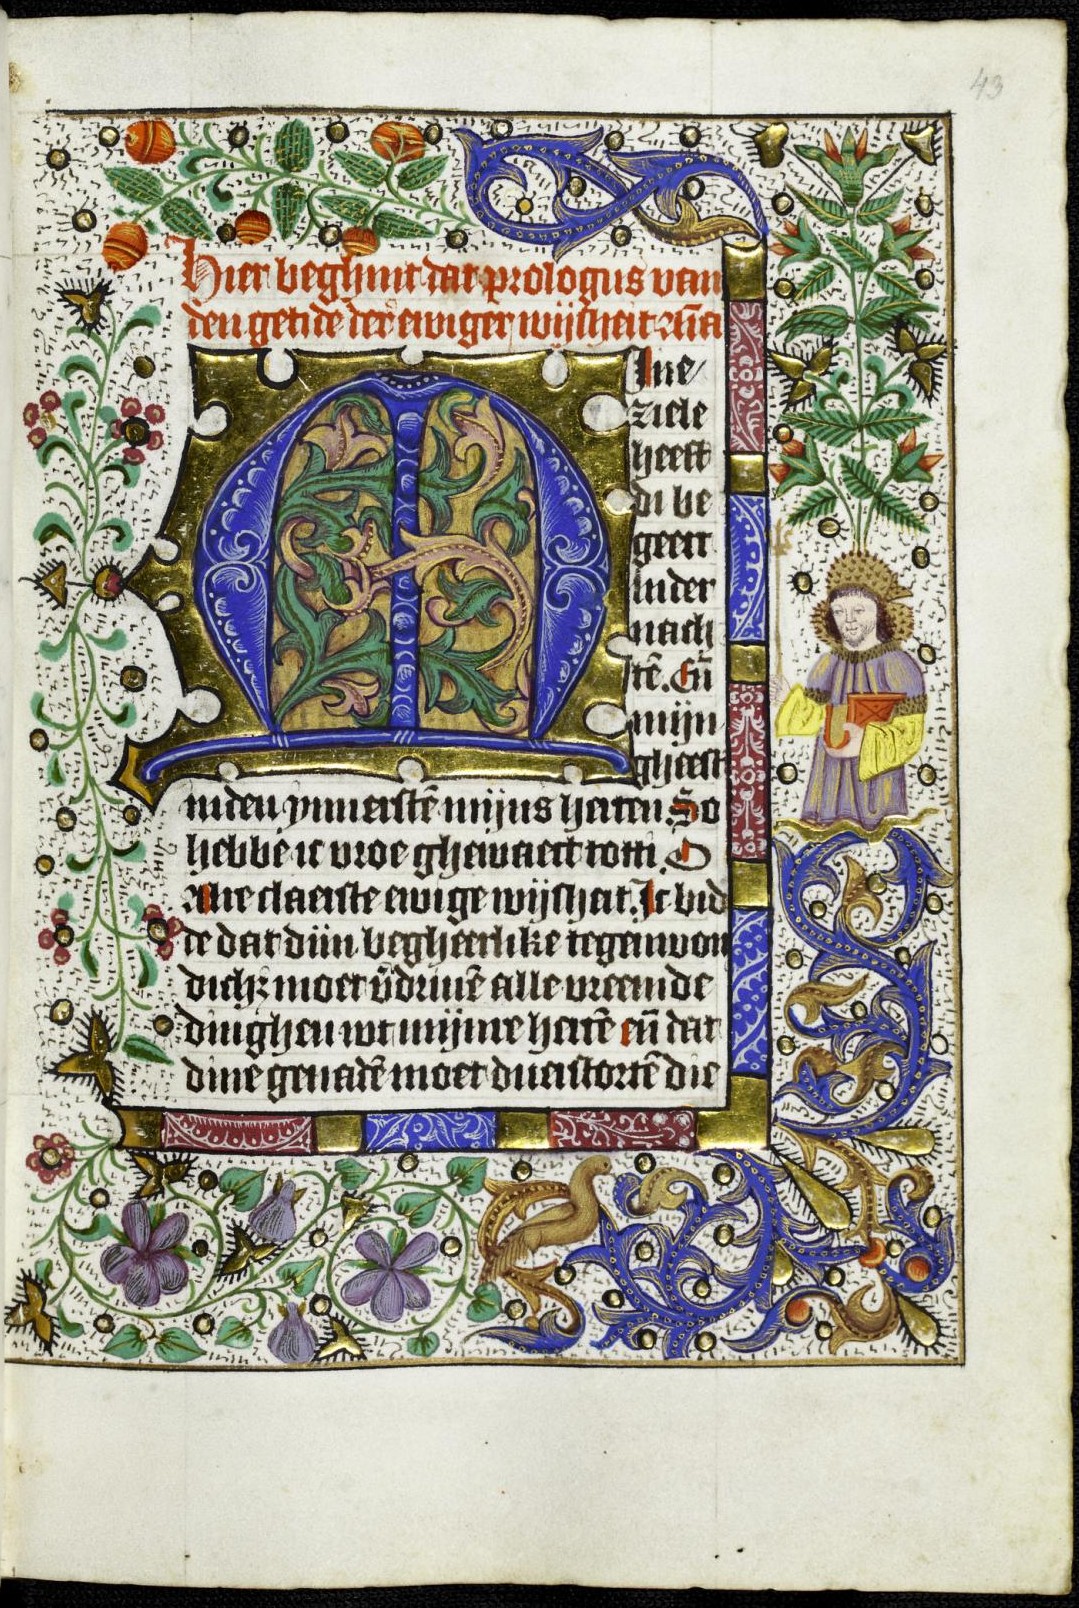 43
Hier beghint dat prologus van
den getide der ewiger wijsheit
M Ine
ziele
heeft
di be
geert
Inder
nach
tē. Eñ
mijn
gheest
inden ynnersten mijns herten So
hebbe ic vroe ghewaect totti. O
alre claerste ewige wijsheit. Ic bid
de dat dijn begheerlike tegenwor
dicht moet v̄driuē alle vreemde
dinghen wt mijnre hertē eñ dat
dine genadē moet duerstortē die